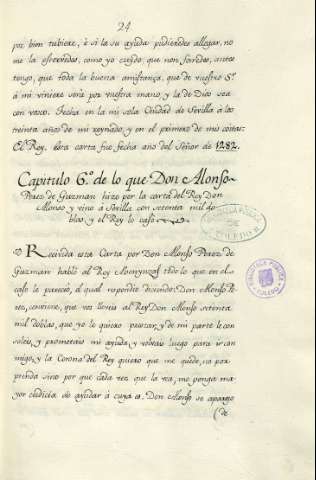 24
por bien tubiere, è si la su ayuda pudieredes allegar, no
me la estorvedes, como yo cuydo que non faredes, antes
tengo, que toda la buena amistança, que de vuestro Sr.
à mi viniere serà por vuestra mano y la de Dios sea
con vusco. Fecha en la mi sola Ciudad de Sevilla à los
treinta años de mi reynado, y en el primero de mis coitas:
El Rey. esta carta fue fecha año del Señor de 1282.
Capitulo 6.º de lo que Don Alonso
Perez de Guzman hizo por la carta del Rey Don
Alonso y vino à Sevilla con setenta mil do
blas, y el Rey lo casò
Recivida esta Carta por Don Alonso Perez de
Guzman hablò al Rey todo lo que en el
caso le pareciò, al qual respondio diciendo: Don Alonso Pe
rez, conviene, que vos lleveis al Rey Don Alonso setenta
mil doblas, que yo le quiero prestar, y de mi parte le con
soleis, y prometais mi ayuda, y volvais luego para ir con
migo, y la Corona del Rey quiero que me quede, no por
prenda sino por que cada vez que la vea, me ponga ma
yor cudicia de ayudar à cuya es. Don Alonso se aparejo
(de